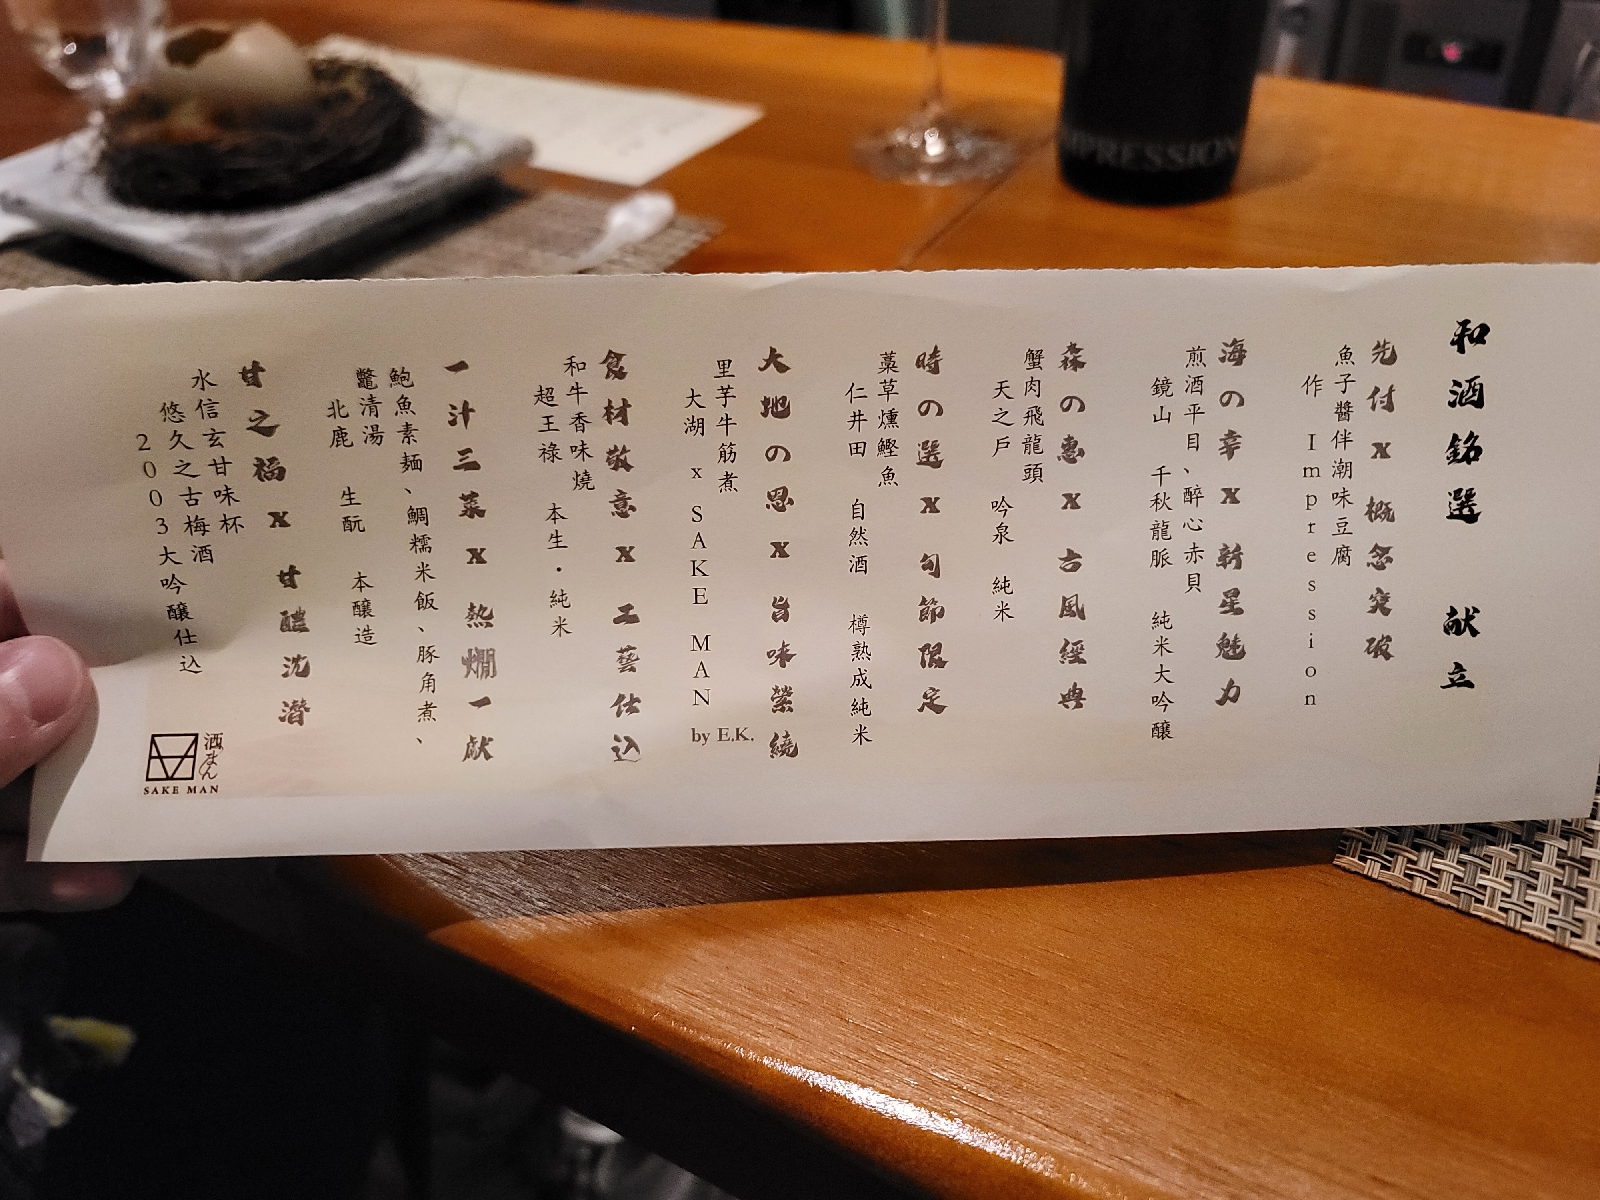 和酒銘選 献立
先付 x 概念突破
魚子醬伴潮味豆腐
作 Impression
海の幸 x 新星魅力
煎酒平目、醉心赤貝
鏡山 千秋龍脈 純米大吟釀
森の惠 x 古風經典
蟹肉飛龍頭
天之戶 吟泉 純米
時の選 x 旬節限定
藁草燻鰹魚
仁井田 自然酒 樽熟成純米
大地の恩 x 旨味縈繞
里芋牛筋煮
大湖 x SAKE MAN by E.K.
食材敬意 x 工藝仕込
和牛香味燒
超王祿 本生・純米
一汁三菜 x 熱燗一献
鮑魚素麺、鯛糯米飯、豚角煮、
鼈清湯
北鹿 生酛 本釀造
甘之福 x 甘醴沈潛
水信玄甘味杯
悠久之古梅酒
2003大吟釀仕込
酒まん
SAKE MAN
PRESSION